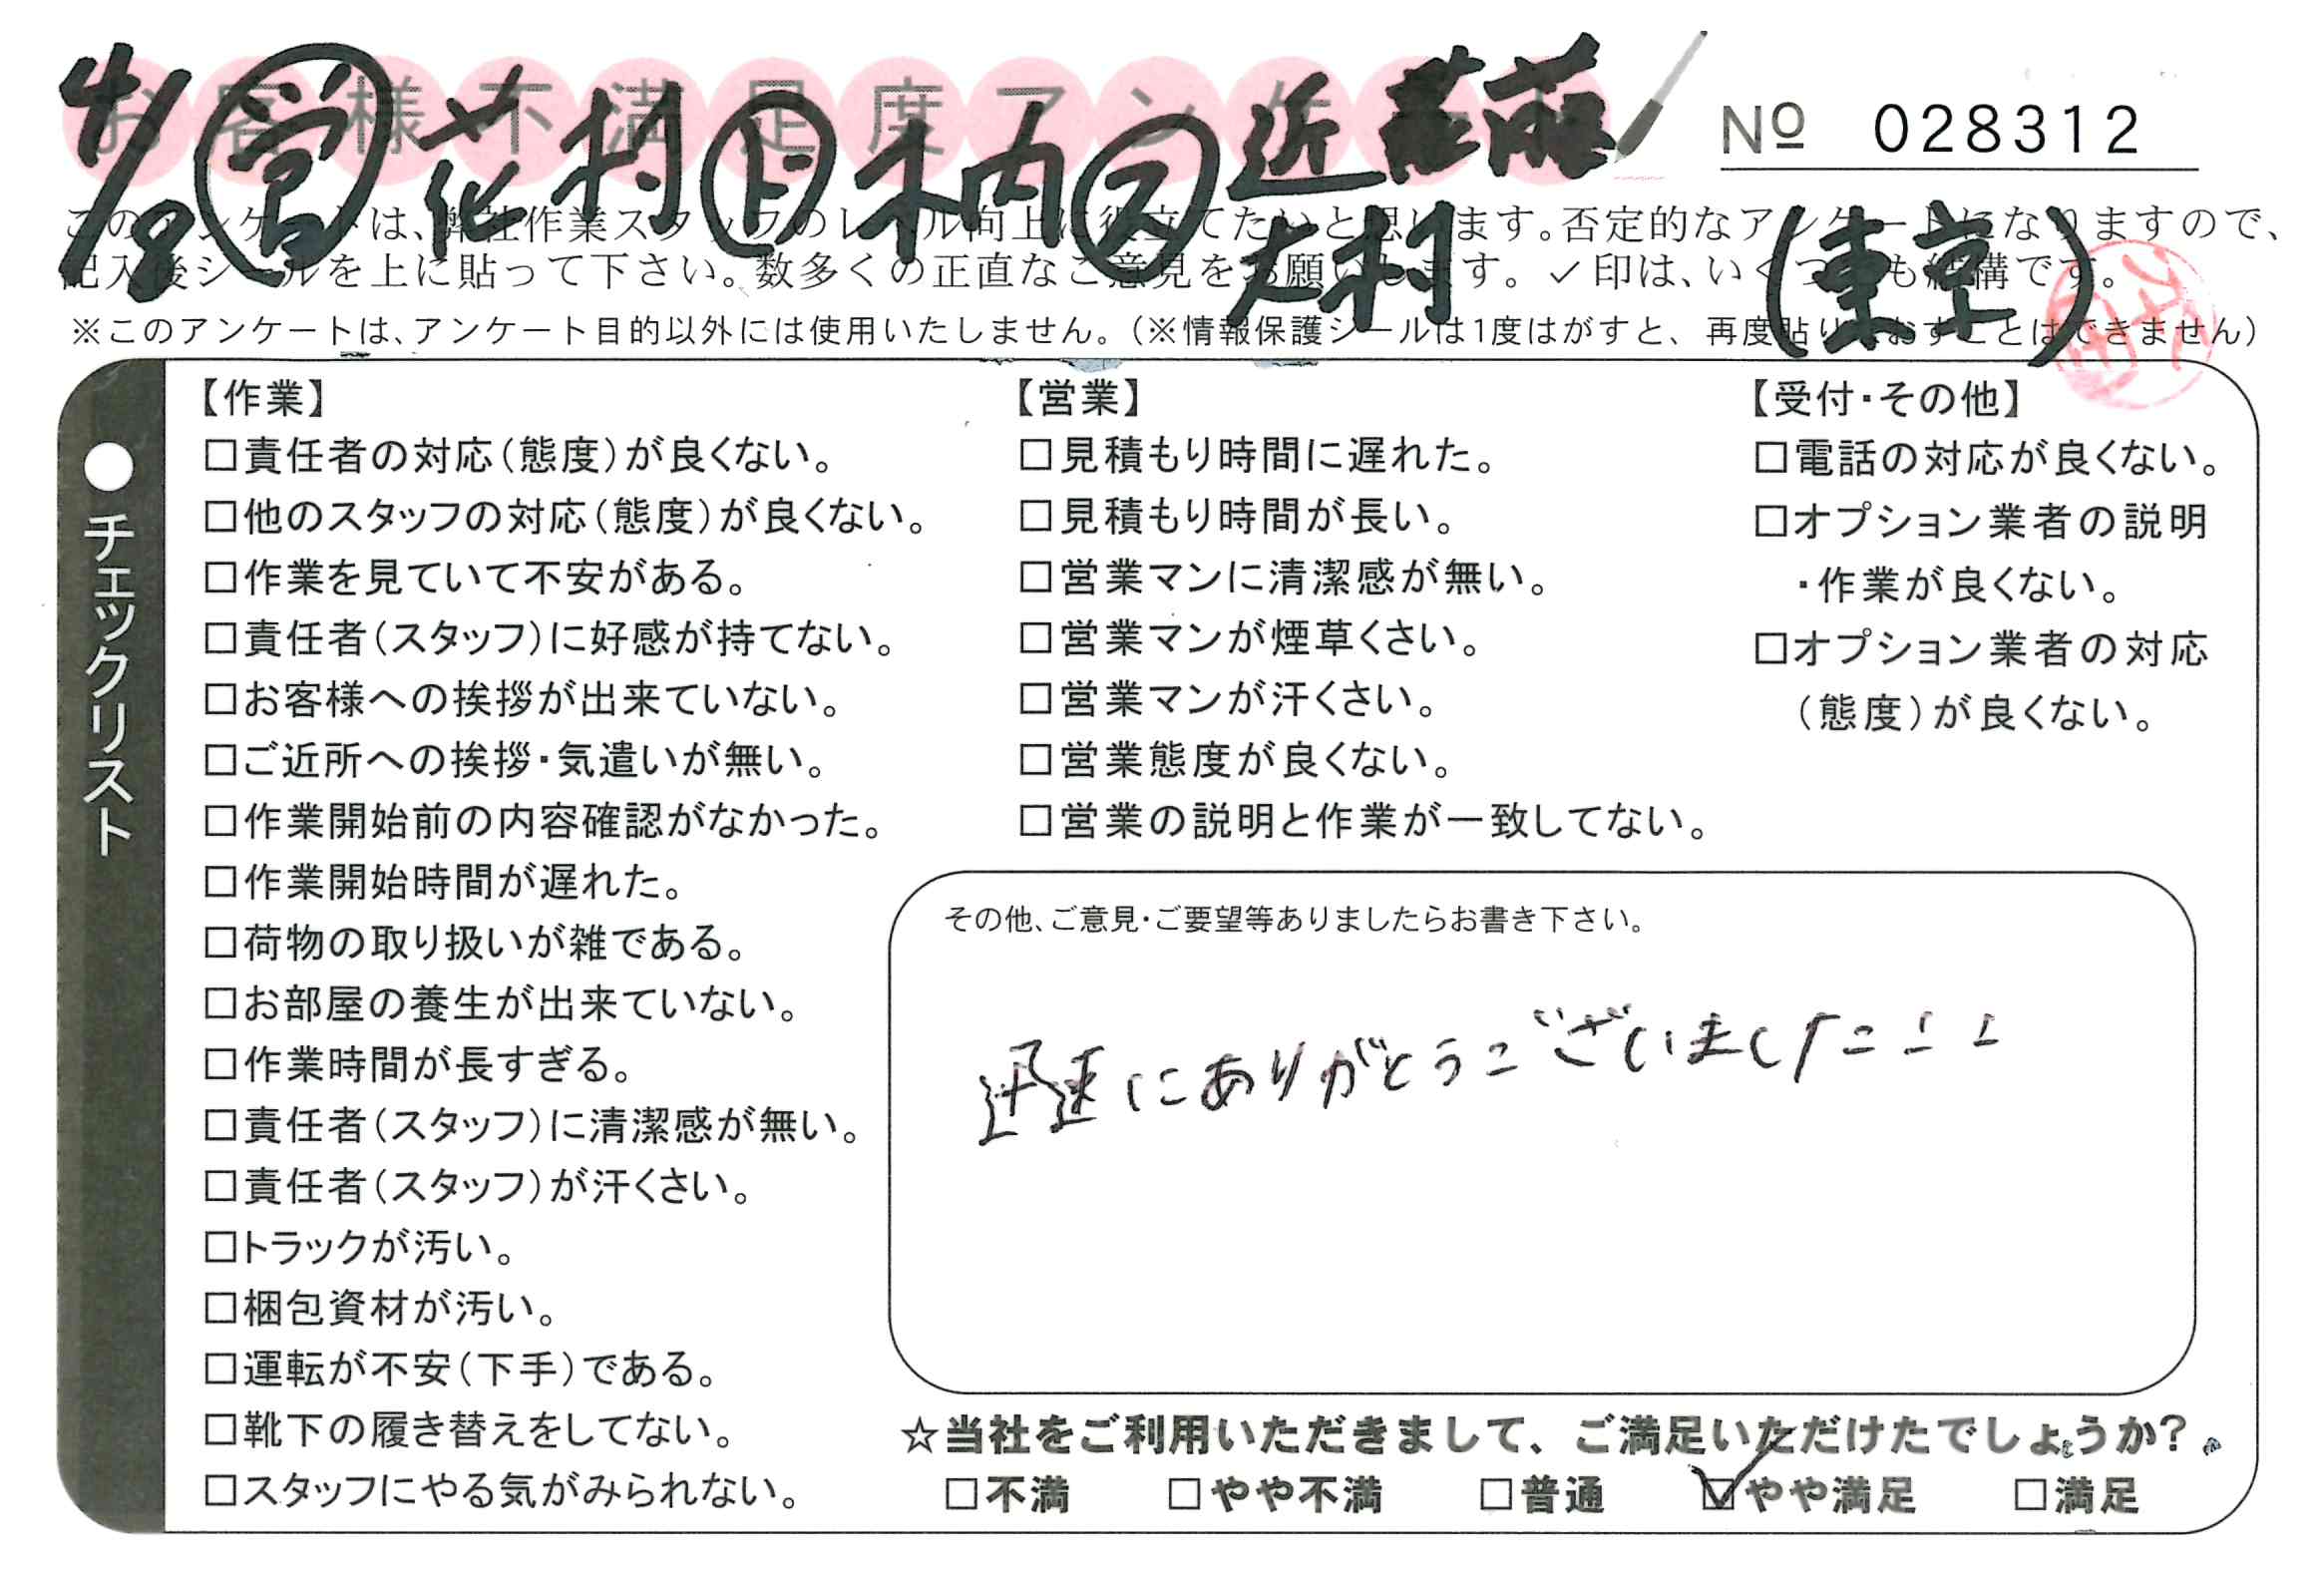 お客様不満足度アンケート
4/8 営 花村 ド 柄 ス 近藤
大村
(東京)
No 028312
このアンケートは、弊社作業スタッフのレベル向上に役立てたいと思います。否定的なアンケートになりますので、
記入後シールを上に貼って下さい。数多くの正直なご意見をお願いします。✓印は、いくつでも結構です。
※このアンケートは、アンケート目的以外には使用いたしません。(※情報保護シールは1度はがすと、再度貼りなおすことはできません)
●チェックリスト
【作業】
□責任者の対応(態度)が良くない。
□他のスタッフの対応(態度)が良くない。
□作業を見ていて不安がある。
□責任者(スタッフ)に好感が持てない。
□お客様への挨拶が出来ていない。
□ご近所への挨拶・気遣いが無い。
□作業開始前の内容確認がなかった。
□作業開始時間が遅れた。
□荷物の取り扱いが雑である。
□お部屋の養生が出来ていない。
□作業時間が長すぎる。
□責任者(スタッフ)に清潔感が無い。
□責任者(スタッフ)が汗くさい。
□トラックが汚い。
□梱包資材が汚い。
□運転が不安(下手)である。
□靴下の履き替えをしてない。
□スタッフにやる気がみられない。
【営業】
□見積もり時間に遅れた。
□見積もり時間が長い。
□営業マンに清潔感が無い。
□営業マンが煙草くさい。
□営業マンが汗くさい。
□営業態度が良くない。
□営業の説明と作業が一致してない。
【受付・その他】
□電話の対応が良くない。
□オプション業者の説明
・作業が良くない。
□オプション業者の対応
(態度)が良くない。
その他、ご意見・ご要望等ありましたらお書き下さい。
迅速にありがとうございました!!
☆当社をご利用いただきまして、ご満足いただけたでしょうか?
□不満 □やや不満 □普通 ☑やや満足 □満足